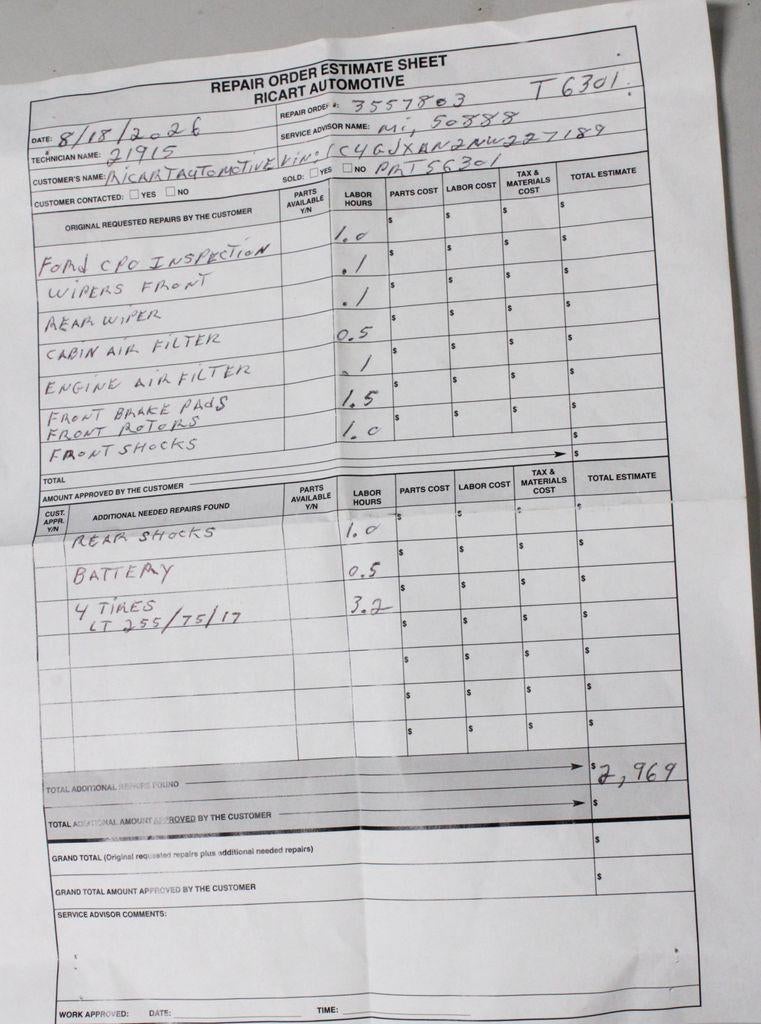 REPAIR ORDER ESTIMATE SHEET
RICART AUTOMOTIVE
DATE: 8/18/2026 REPAIR ORDER #: 3557803 T6301
TECHNICIAN NAME: 21915 SERVICE ADVISOR NAME: Mi, 50888
CUSTOMER'S NAME: RICART AUTOMOTIVE Vin: 1C4GJXAN2NW227189
CUSTOMER CONTACTED: YES NO SOLD: YES NO PRT56301
ORIGINAL REQUESTED REPAIRS BY THE CUSTOMER PARTS AVAILABLE Y/N LABOR HOURS PARTS COST LABOR COST TAX & MATERIALS COST TOTAL ESTIMATE
FORD CPO INSPECTION 1.0 $ $ $ $
WIPERS FRONT .1 $ $ $ $
REAR WIPER .1 $ $ $ $
CABIN AIR FILTER 0.5 $ $ $ $
ENGINE AIR FILTER .1 $ $ $ $
FRONT BRAKE PADS
FRONT ROTORS 1.5 $ $ $ $
FRONT SHOCKS 1.0 $ $ $ $
TOTAL $
AMOUNT APPROVED BY THE CUSTOMER $
CUST. APPR. Y/N ADDITIONAL NEEDED REPAIRS FOUND PARTS AVAILABLE Y/N LABOR HOURS PARTS COST LABOR COST TAX & MATERIALS COST TOTAL ESTIMATE
REAR SHOCKS 1.0 $ $ $ $
BATTERY 0.5 $ $ $ $
4 TIRES 3.2 $ $ $ $
LT 255/75/17
$ $ $ $
$ $ $ $
$ $ $ $
$ $ $ $
TOTAL ADDITIONAL REPAIRS FOUND $ 2,969
TOTAL ADDITIONAL AMOUNT APPROVED BY THE CUSTOMER $
GRAND TOTAL (Original requested repairs plus additional needed repairs) $
GRAND TOTAL AMOUNT APPROVED BY THE CUSTOMER $
SERVICE ADVISOR COMMENTS:
WORK APPROVED: DATE: TIME: